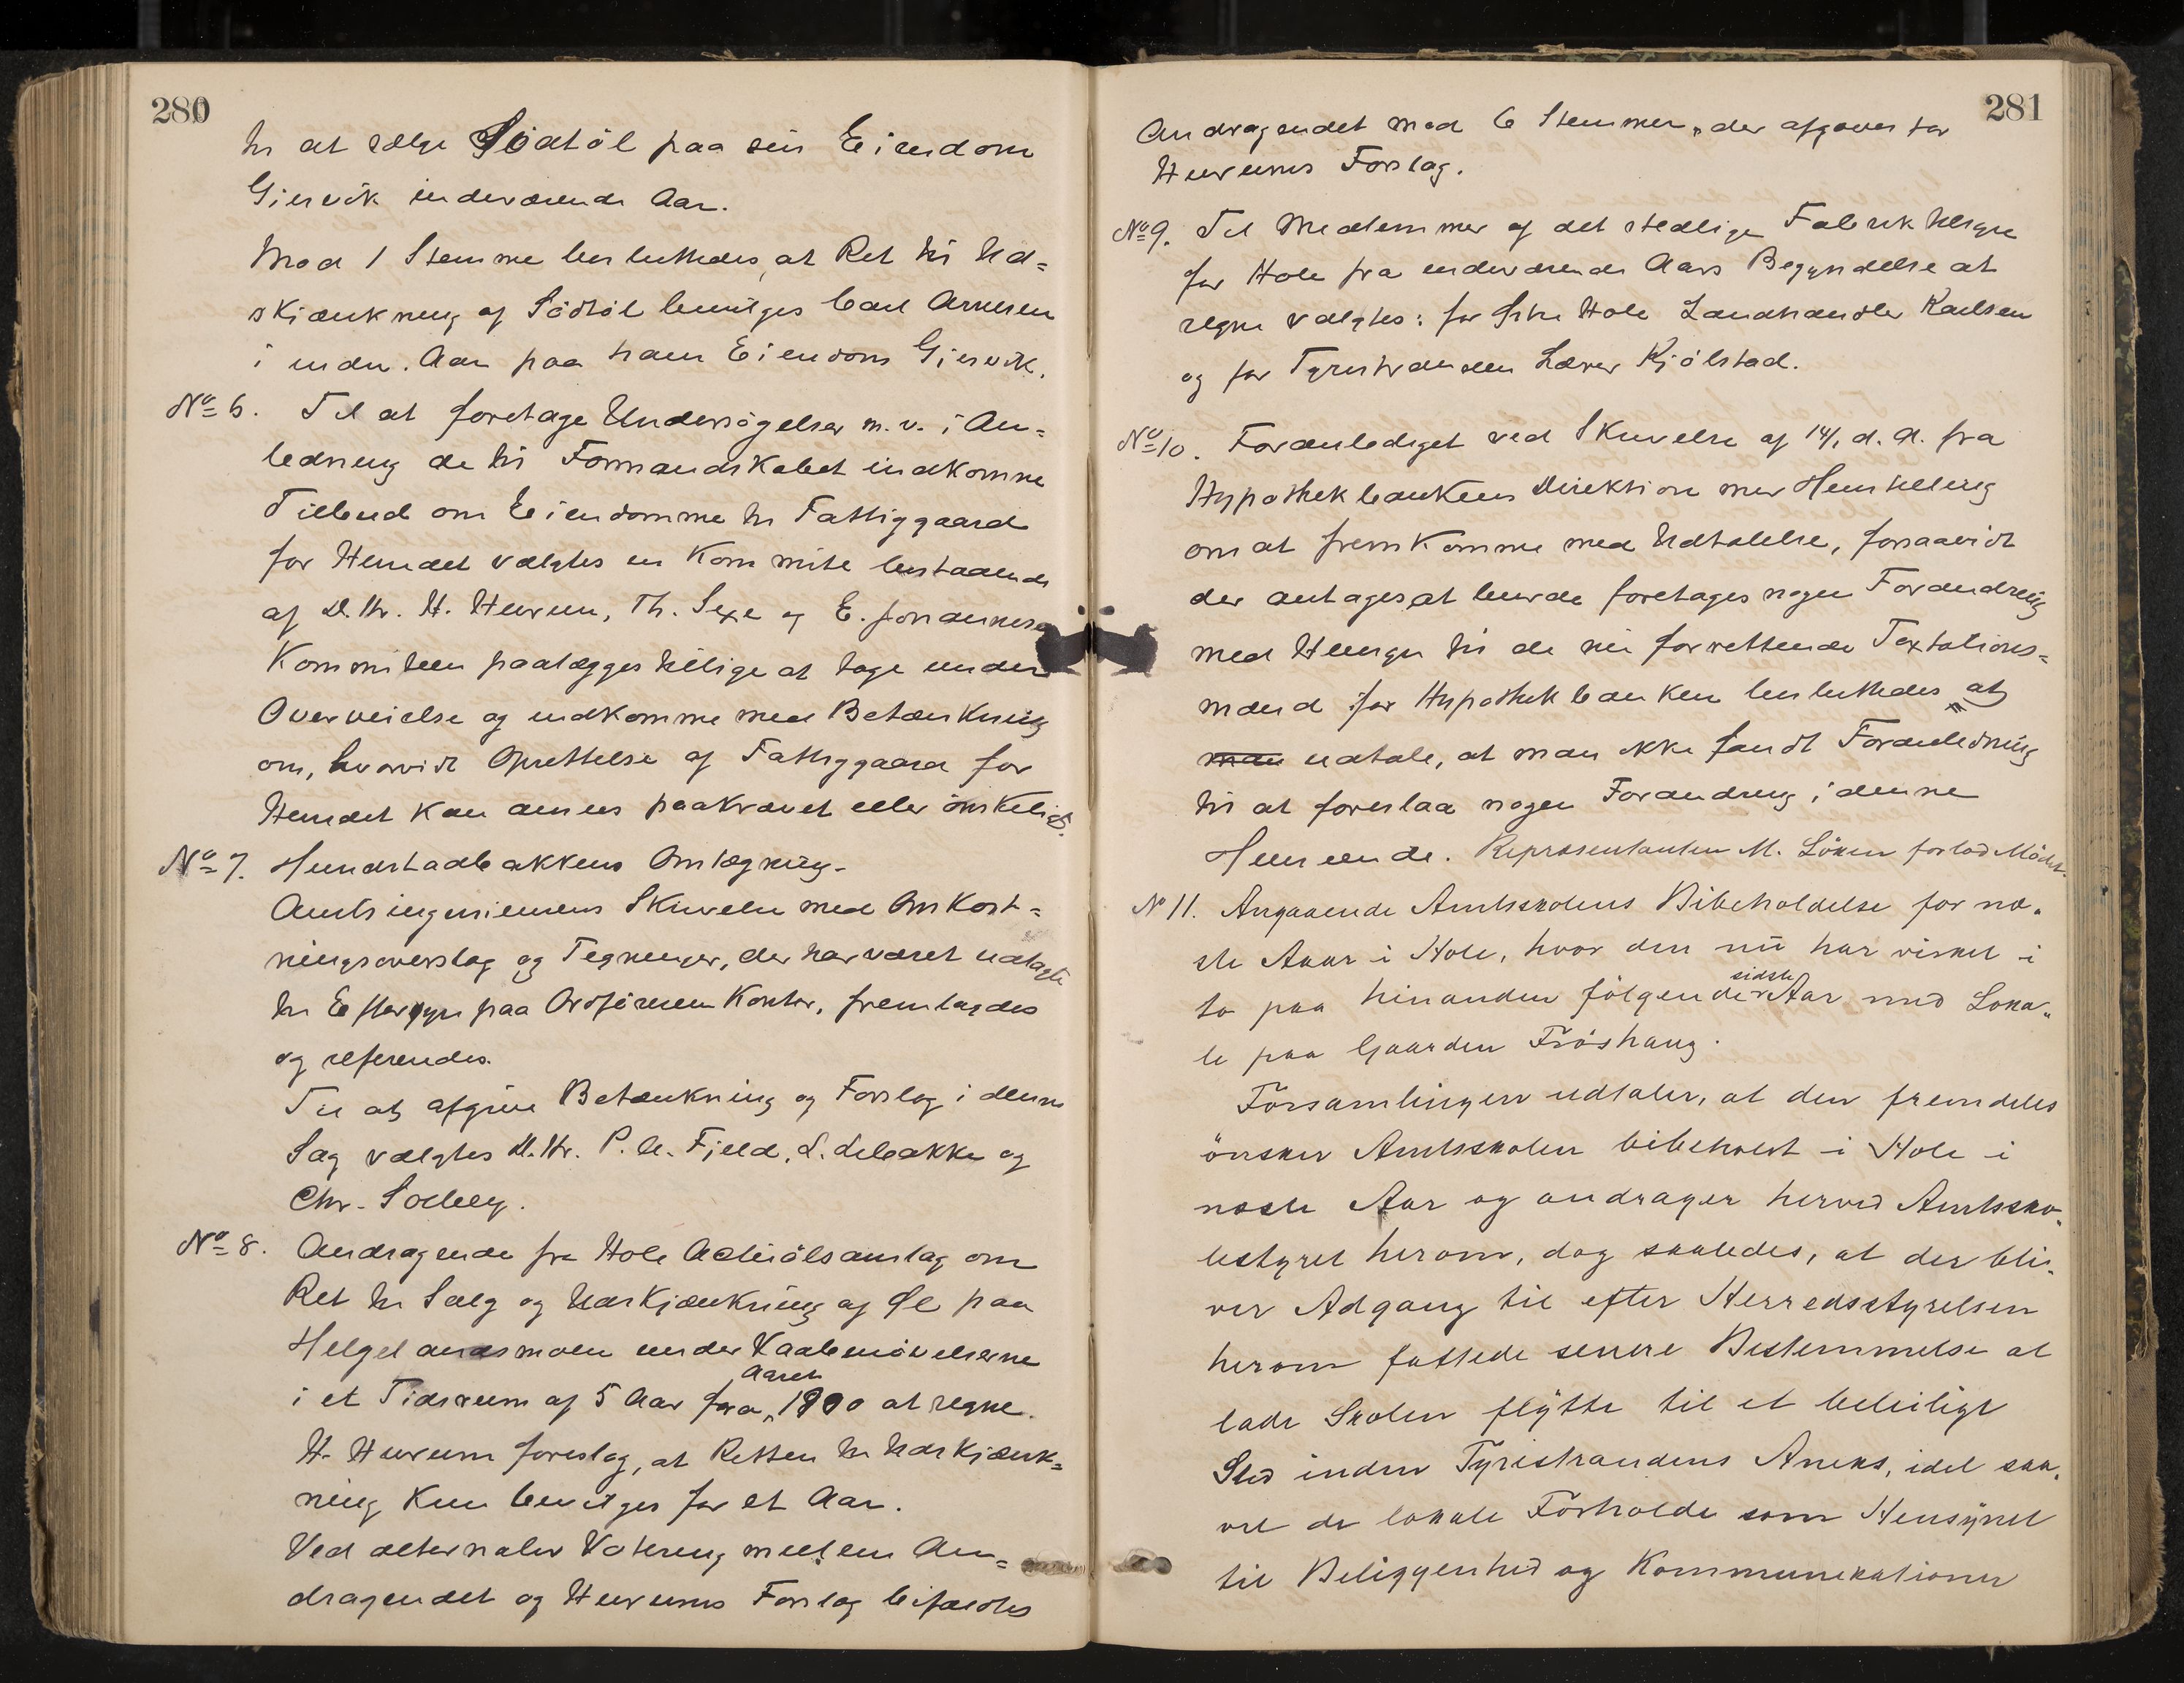 280
til at sælge Sødtöl paa sin Eiendom
Giesvik indeværende Aar.
Mod 1 Stemme besluttedes, at Ret til Ud=
skjænkning af Södtöl bevilges Carl Arnesen
i indev. Aar paa hans Eiendom Giesvik.
No 6. Til at foretage Undersögelser m. v. i An=
ledning de til Formandskabet indkomne
Tilbud om Eiendomme til Fattiggaard
for Herredet valgtes en Kommite bestaaende
af D.Hr. H. Hurum, Th. Sexe og E. Johannesen
Kommiteen paalægges tillige at tage under
Overveielse og indkomme med Betænkning
om, hvorvidt Oprettelse af Fattiggaard for
Herredet kan ansees paakrævet eller önskeligt.
No 7. Hundstadbakkens Omlægning.
Amtsingeniörens Skrivelse med Omkost=
ningsoverslag og Tegninger, der har været udlagte
til Eftersyn paa Ordförerens Kontor, fremlagdes
og refereredes.
Til at afgive Betænkning og Forslag i denne
Sag valgtes D.Hr. P. A. Fjeld, L. Libakke og
Chr. Solberg.
No 8. Andragende fra Hole Actieölsamlag om
Ret til Salg og Udskjænkning af Øl paa
Helgelandsmoen under Vaabenövelserne
i et Tidsrum af 5 Aar fra Aaret 1890 at regne.
H. Hurum foreslog, at Retten til Udskjænk=
ning kun bevilges for et Aar.
Ved alternativ Votering mellem An=
dragendet og Hurums Forslag bifaldtes
281
Andragendet mod 6 Stemmer, der afgaves for
Hurums Forslag.
No 9. Til Medlemmer af det stedlige Fabriktilsyn
for Hole fra indeværende Aars Begyndelse at
regne valgtes: for Hole Landhandler Karlsen
og for Tyristranden Lærer Kjölstad.
No 10. Foranlediget ved Skrivelse af 14/1 d. A. fra
Hypothekbankens Direktion med Henstilling
om at fremkomme med Udtalelse, forsaavidt
der antages at burde foretages nogen Forandring
med Hensyn til de nu forrettende Taxtations=
mænd for Hypothekbanken besluttedes at
man udtale, at man ikke fandt Foranledning
til at foreslaa nogen Forandring i denne
Henseende. Repræsentanten M. Lönen forlod Mödet.
No 11. Angaaende Amtsskolens Bibeholdelse for næ„
ste Aar i Hole, hvor den nu har virket i
to paa hinanden fölgende sidste Aar med Loka„
le paa Gaarden Fröshaug.
Forsamlingen udtaler, at den fremdeles
önsker Amtsskolen bibeholdt i Hole i
næste Aar og andrager herved Amtssko„
lestyret herom, dog saaledes, at der bli„
ver Adgang til efter Herredsstyrelsen
herom fattede senere Bestemmelse at
lade Skolen flytte til et beleiligt
Sted inden Tyristrandens Aneks, idet saa„
vel de lokale Forholde som Hensynet
til Beliggenhed og Kommunikationer